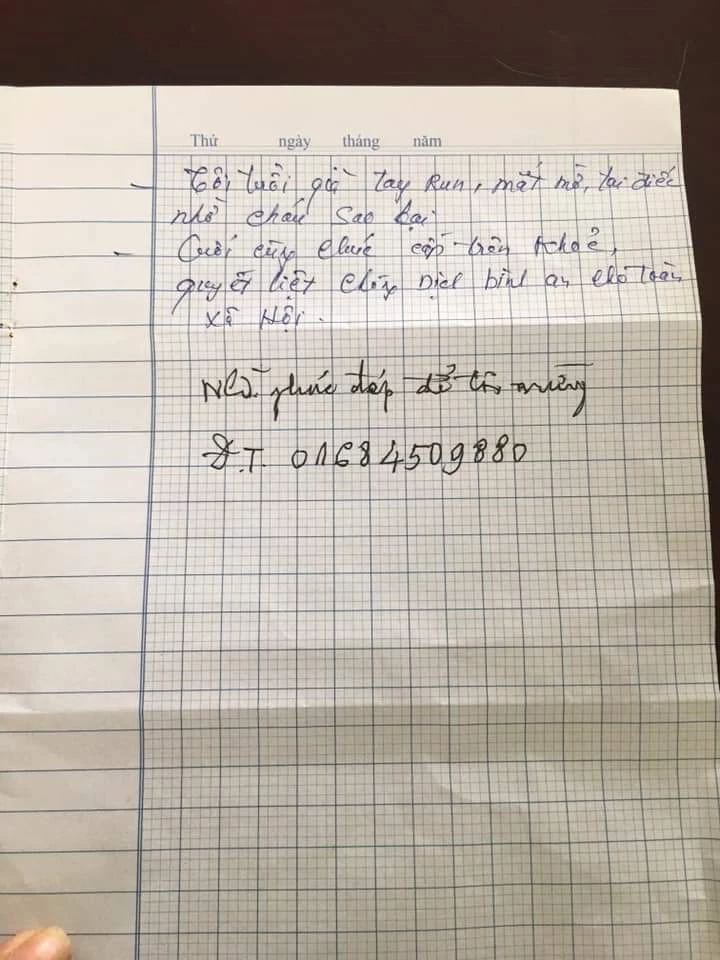 Thứ ngày tháng năm
- Tôi, tuổi già tay Run, mắt mờ, tai điếc
nhờ cháu Sao lại
- Cuối cùng chúc cấp trên khoẻ,
quyết liệt chống Dịch bình an cho toàn
xã Hội.
phúc đáp để tôi mừng
Đ.T. 01684509880